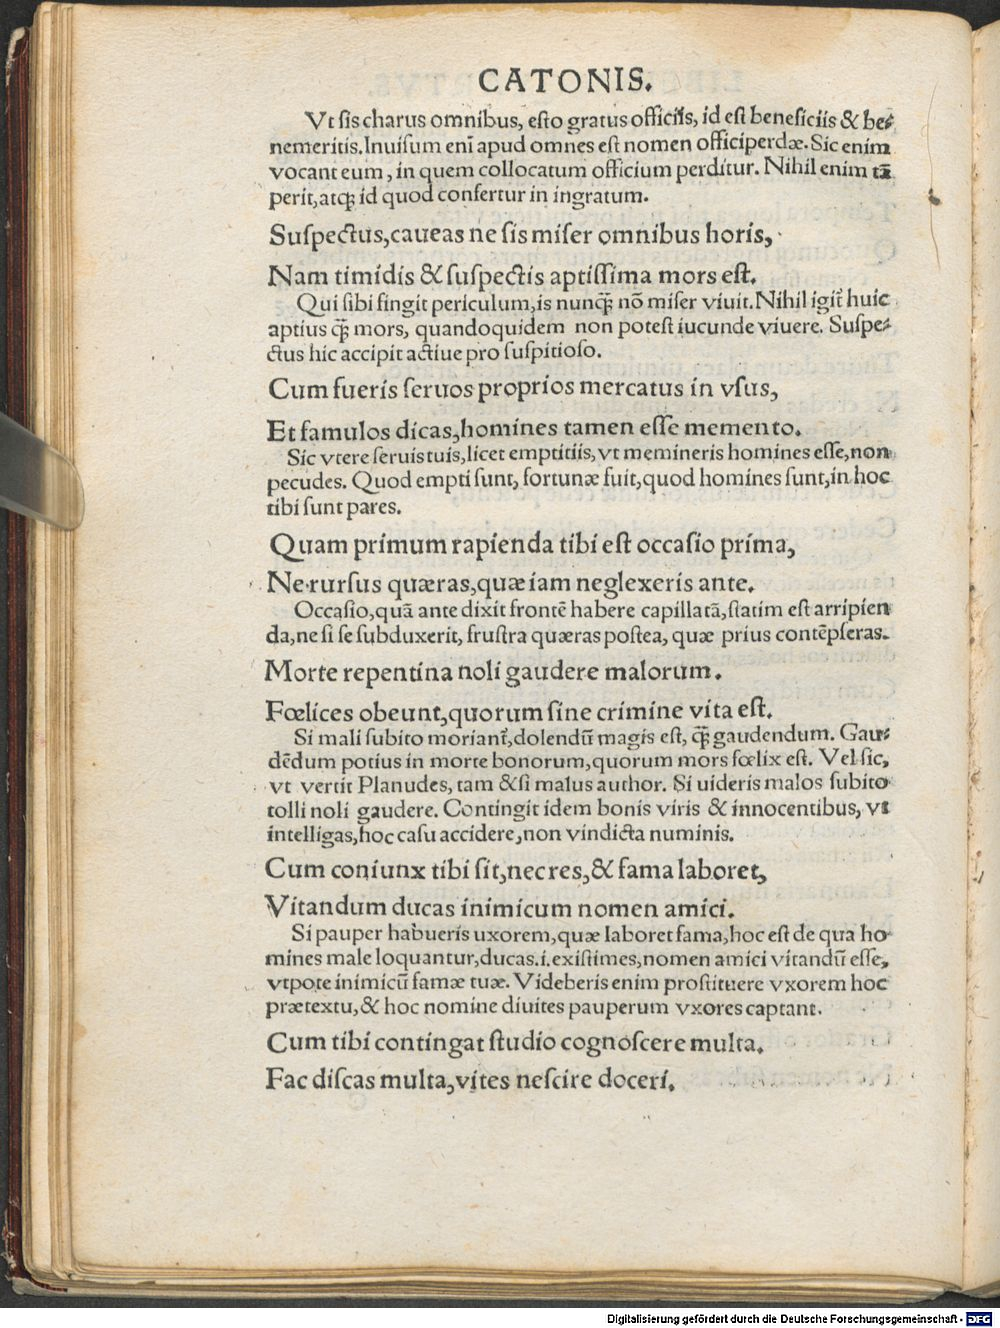 CATONIS.
Vt sis charus omnibus, esto gratus officiis, id est beneficiis & be⸗
nemeritis. Inuisum enī apud omnes est nomen officiperdæ. Sic enim
vocant eum, in quem collocatum officium perditur. Nihil enim tā
perit, atq; id quod confertur in ingratum.
Suspectus, caueas ne sis miser omnibus horis,
Nam timidis & suspectis aptissima mors est.
Qui sibi fingit periculum, is nunq̃ nō miser viuit. Nihil igit᷑ huic
aptius q̃ mors, quandoquidem non potest iucunde viuere. Suspe⸗
ctus hic accipit actiue pro suspitioso.
Cum fueris seruos proprios mercatus in vsus,
Et famulos dicas, homines tamen esse memento.
Sic vtere seruis tuis, licet emptitiis, vt memineris homines esse, non
pecudes. Quod empti sunt, fortunæ fuit, quod homines sunt, in hoc
tibi sunt pares.
Quam primum rapienda tibi est occasio prima,
Ne rursus quæras, quæ iam neglexeris ante.
Occasio, quā ante dixit frontē habere capillatā, statim est arripien
da, ne si se subduxerit, frustra quæras postea, quæ prius contēpseras.
Morte repentina noli gaudere malorum.
Fœlices obeunt, quorum sine crimine vita est.
Si mali subito moriant᷑, dolendū magis est, q̃ gaudendum. Gau⸗
dēdum potius in morte bonorum, quorum mors fœlix est. Vel sic,
vt vertit Planudes, tam & si malus author. Si uideris malos subito
tolli noli gaudere. Contingit idem bonis viris & innocentibus, vt
intelligas, hoc casu accidere, non vindicta numinis.
Cum coniunx tibi sit, nec res, & fama laboret,
Vitandum ducas inimicum nomen amici.
Si pauper habueris uxorem, quæ laboret fama, hoc est de qua ho
mines male loquantur, ducas .i. existimes, nomen amici vitandū esse,
vtpote inimicū famæ tuæ. Videberis enim prostituere vxorem hoc
prætextu, & hoc nomine diuites pauperum vxores captant.
Cum tibi contingat studio cognoscere multa.
Fac discas multa, vites nescire doceri.
Digitalisierung gefördert durch die Deutsche Forschungsgemeinschaft - DFG